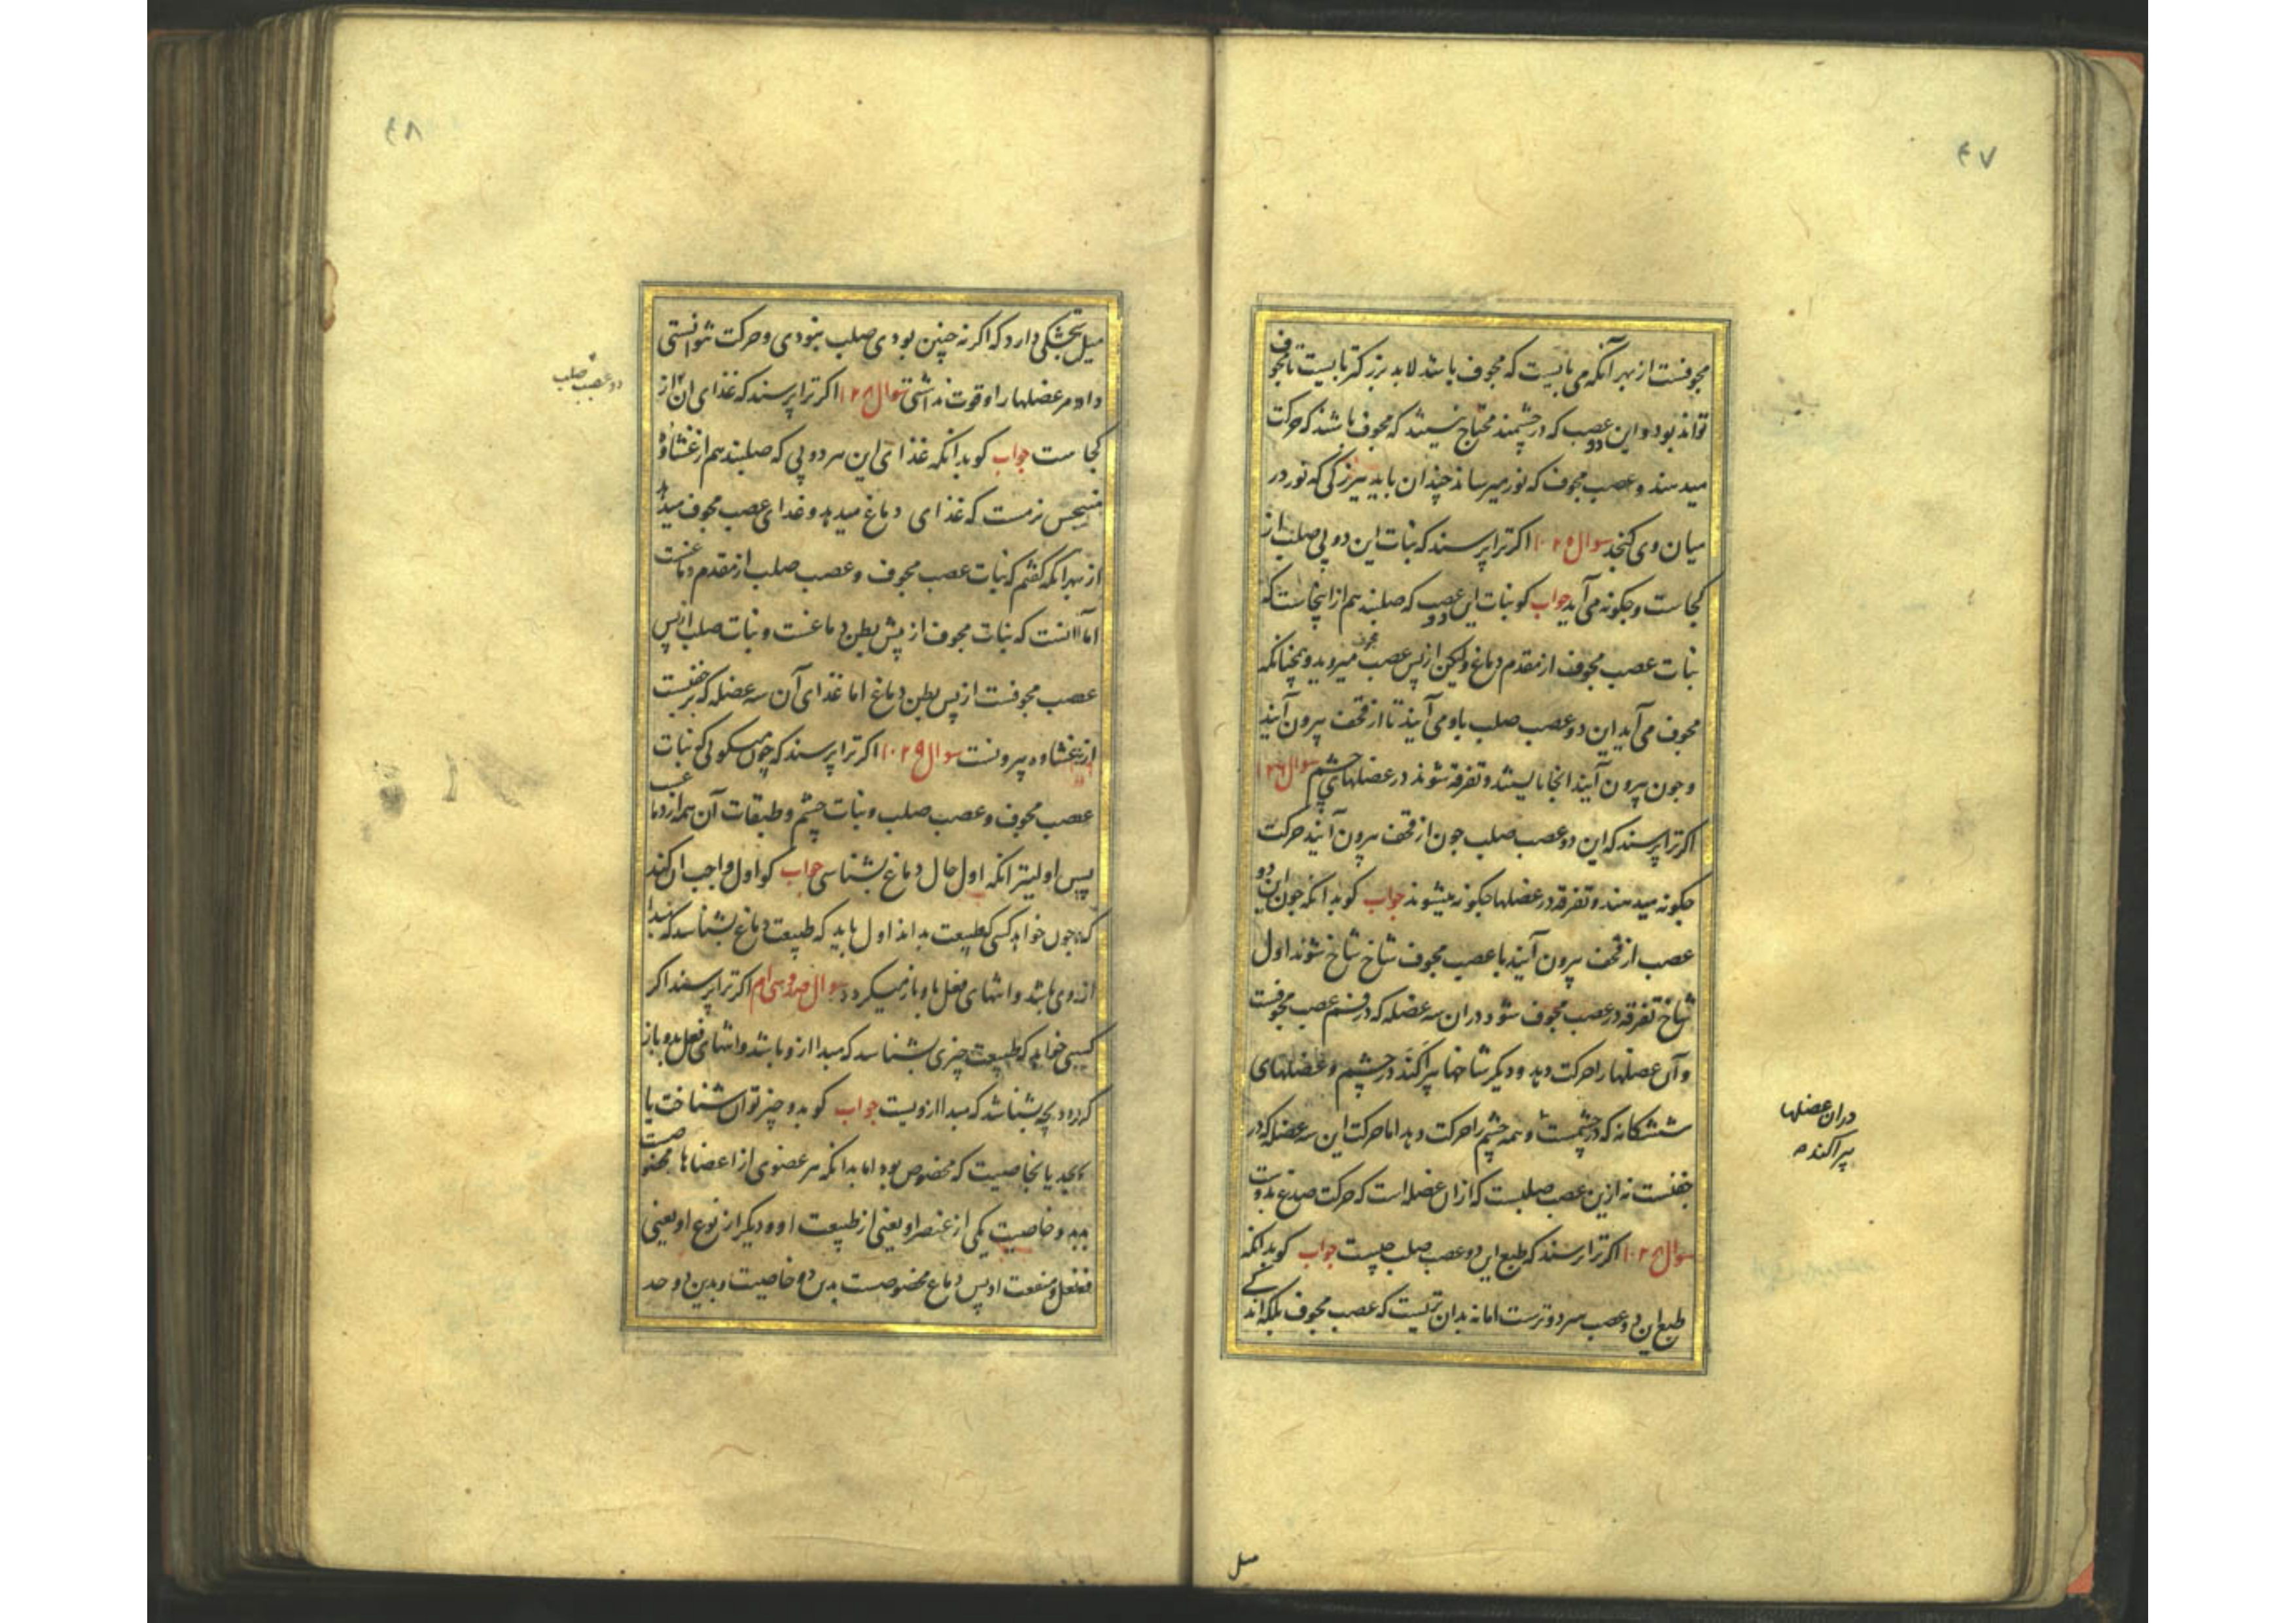 ۴۷
مجوفست از بهر آنکه می بایست که مجوف باشد لابد بزرکتر بایست تا مجوف
تواند بود و این دو عصب که در چشمند محتاج نیستند که مجوف باشند که حرکت
میدهند و عصب مجوف که نور میرساند چندان باید ببزرکی که نور در
میان وی کنجد سوال اکر ترا پرسند که نبات این دو پی صلب از
کجاست و جکونه می آید جواب کو نبات این دو عصب که صلبند هم از انجاست که
نبات عصب مجوف از مقدم دماغ ولیکن از پس عصب مجوف میروید و همچنانکه
مجوف می آید این دو عصب صلب باو می آیند تا از قحف بیرون آیند
و جون بیرون آیند انجا بایستند و تفرقه شوند در عضلهای چشم سوال
اکر ترا پرسند که این دو عصب صلب جون از قحف بیرون آیند حرکت
جکونه میدهند و تفرقه در عضلها جکونه میشوند جواب کو بدانکه جون این دو
عصب از قحف بیرون آیند با عصب مجوف شاخ شاخ شوند اول
شاخ تفرقه در عصب مجوف شود در ان سه عضله که در فم عصب مجوفست
و آن عضلها را حرکت دهد و دیکر شاخها پراکند در چشم و عضلهای
ششکانه که در چشمست و همه چشم را حرکت دهد اما حرکت این سه عضله که در
جفنست نه ازین عصب صلبست که ازان عضله است که حرکت صدغ بدوست
سوال اکر ترا پرسند که طبع این دو عصب صلب چیست جواب کو بدانکه
طبع این دو عصب سرد و ترست اما نه بدان تریست که عصب مجوف بلکه اندکی
دران عضلها
پراکنده
میل
۴۸
میل بخشکی دارد که اکر نه چنین بودی صلب نبودی و حرکت نتوانستی
داد و مر عضلها را قوت نداشتی سوال اکر ترا پرسند که غذای ان از
کجاست جواب کو بدانکه غذای این هر دو پی که صلبند هم از غشاوه
نرمست که غذای دماغ میدهد و غذای عصب مجوف میدهد
از بهر انکه کفتم که نبات عصب مجوف و عصب صلب از مقدم دماغست
اما آنست که نبات مجوف از پیش بطن دماغست و نبات صلب از پس
عصب مجوفست از پس بطن دماغ اما غذای آن سه عضله که بر جفنست
از غشاوه بیرونست سوال اکر ترا پرسند که چون میکوئی که نبات
عصب مجوف و عصب صلب و نبات چشم و طبقات آن همه از دماغ
پس اولیتر انکه اول حال دماغ بشناسی جواب کو اول واجب ان کند
که جون خواهد کسی که طبیعت بداند اول باید که طبیعت دماغ بشناسد که مبدا
از وی باشد و انتهای فعل باو باز میکردد سوال صد و سی ام اکر ترا پرسند اکر
کسی خواهد که طبیعت چیزی بشناسد که مبدا ازو باشد و انتهای فعل بدو باز
کردد بچه بشناسد که مبدا ازویست جواب کو بدو چیز توان شناخت یا
بحد یا بخاصیت که مخصوص بود اما بدانکه هر عضوی از اعضاها مخصوصست
بدو خاصیت یکی از عنصر او یعنی از طبیعت او و دیکر از نوع او یعنی
فعل و منفعت او پس دماغ مخصوصست بدین دو خاصیت و بدین دو حد
دو عصب صلب